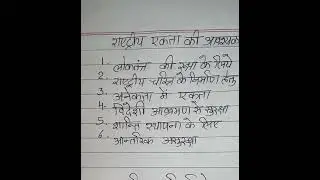 राष्ट्रीय एकता की आवश्यक
1. लोकतंत्र की रक्षा के लिये
2. राष्ट्रीय चरित्र के निर्माण हेतु
3. अनेकता में एकता
4. विदेशी आक्रमण से सुरक्षा
5. शान्ति स्थापना के लिए
6. आन्तरिक असुरक्षा